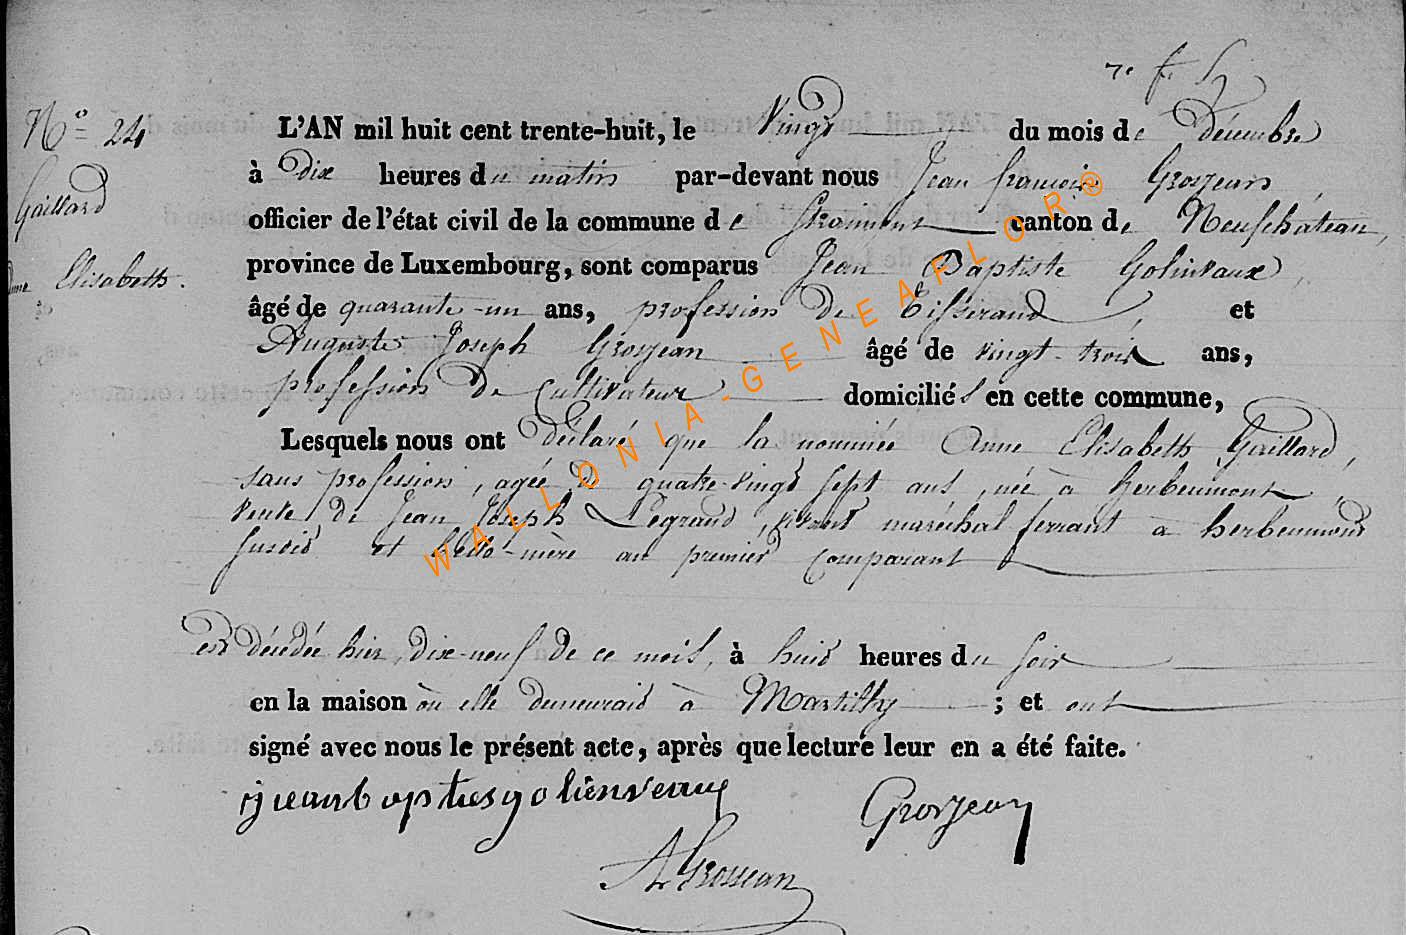 7e f.
N° 24
Gaillard
Anne Elisabeth.
L'AN mil huit cent trente-huit, le Vingt du mois de décembre
à dix heures du matin par-devant nous Jean françois Grosjean,
officier de l'état civil de la commune de Straimont canton de Neufchâteau,
province de Luxembourg, sont comparus Jean Baptiste Golinvaux,
âgé de quarante-un ans, profession de Tisserand, et
Auguste Joseph Grosjean âgé de vingt-trois ans,
profession de Cultivateur domiciliés en cette commune,
Lesquels nous ont déclaré que la nommée Anne Elisabeth Gaillard,
sans profession, agée de quatre-vingt sept ans, née à herbeumont,
veuve de Jean Joseph Legrand, vivant maréchal ferrant à herbeumont
susdit et belle-mère au premier comparant
est décédée hier, dix-neuf de ce mois, à huit heures du soir
en la maison où elle demeurait à Martilly ; et ont
signé avec nous le présent acte, après que lecture leur en a été faite.
jjeanbaptiesgolienveaux Grosjean
A Grosjean
WALLONIA-GENEAFLOR®